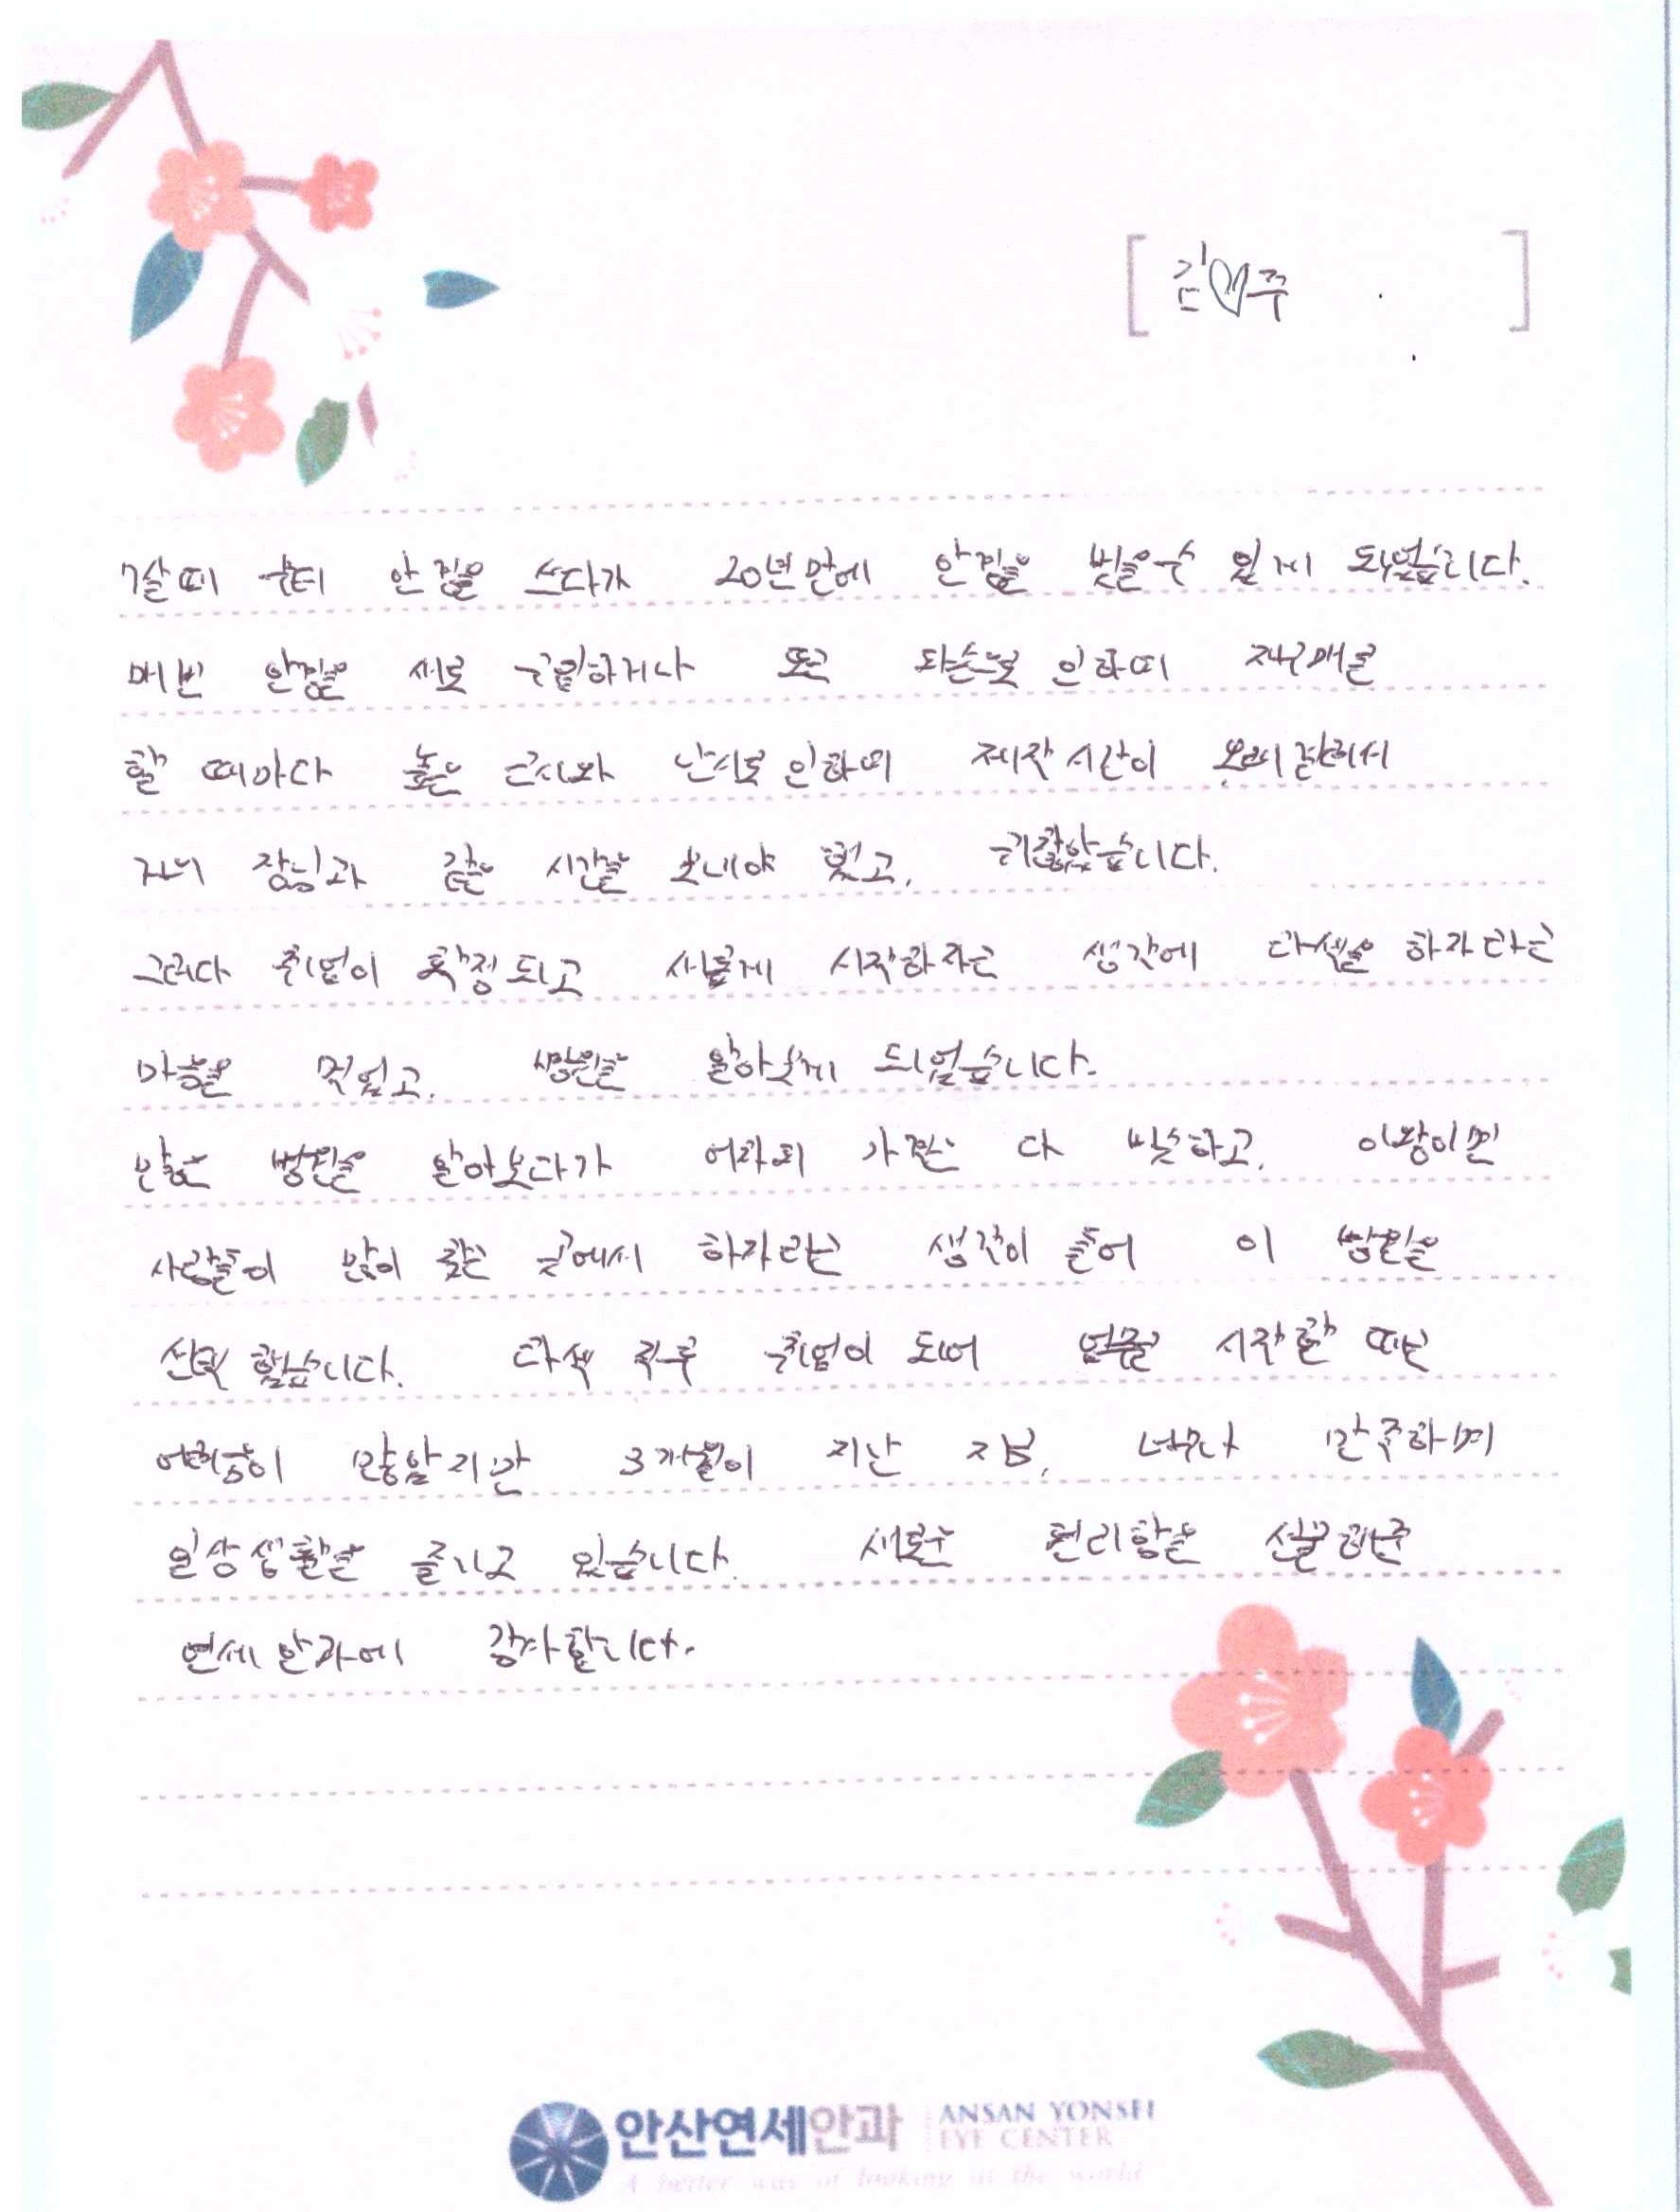 [ 김♡주 ]
7살때 부터 안경을 쓰다가 20년만에 안경을 벗을수 있게 되었습니다.
매번 안경을 새로 구입하거나 또는 파손으로 인하여 재구매를
할 때마다 높은 근시와 난시로 인하여 제작 시간이 오래 걸려서
거의 장님과 같은 시간을 보내야 했고, 귀찮았습니다.
그러다 취업이 확정되고 새롭게 시작하자는 생각에 라섹을 하자라는
마음을 먹었고, 병원을 알아보게 되었습니다.
많은 병원을 알아보다가 어차피 가격은 다 비슷하고, 이왕이면
사람들이 많이 찾는 곳에서 하자라는 생각이 들어 이 병원을
선택 했습니다. 라섹 직후 취업이 되어 업무를 시작할 때는
어려움이 많았지만 3개월이 지난 지금, 너무나 만족하며
일상생활을 즐기고 있습니다. 새로운 편리함을 선물해준
연세안과에 감사합니다.
안산연세안과 ANSAN YONSEI
EYE CENTER
A better way of looking at the world